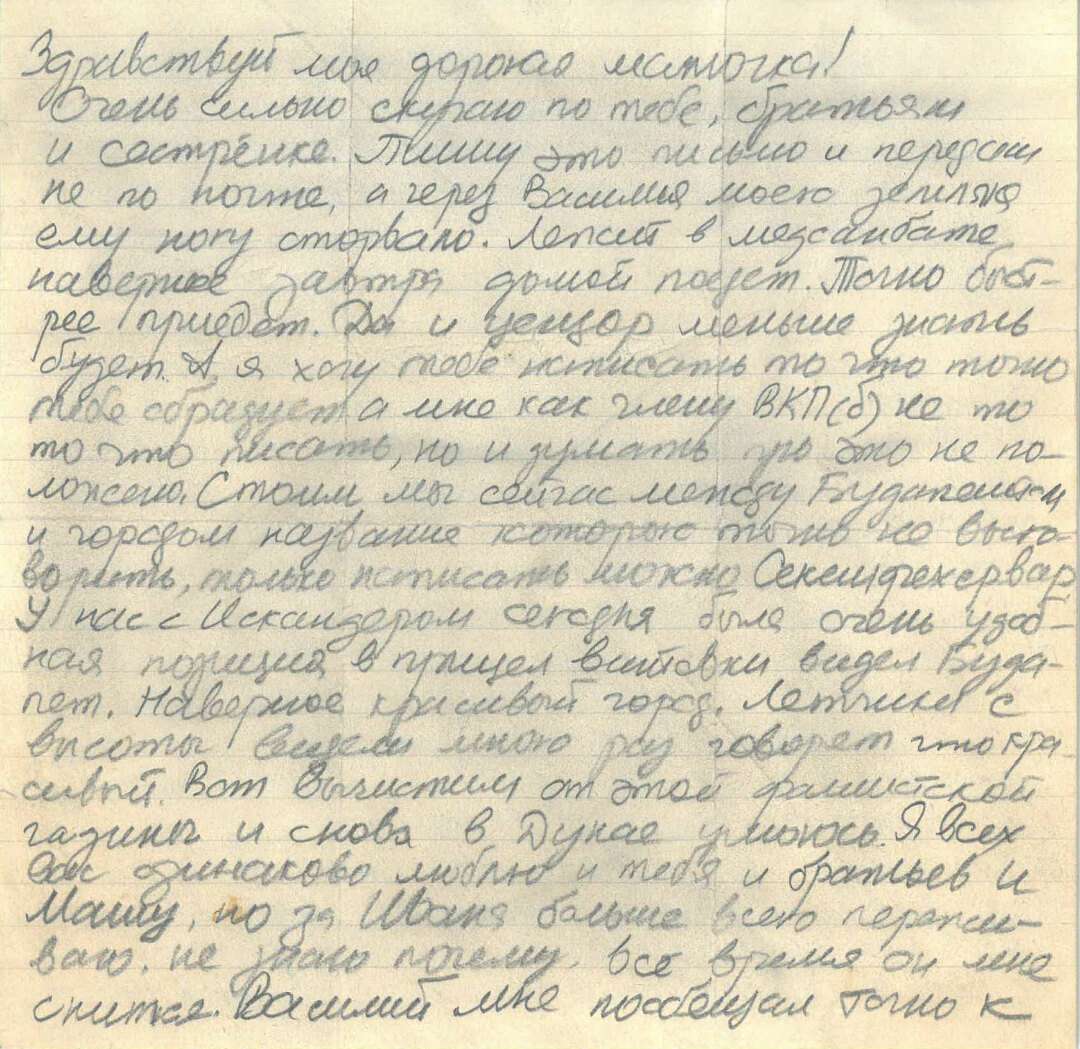 Здравствуй моя дорогая маточка!
Очень сильно скучаю по тебе, братьям
и сестрёнке. Пишу это письмо и передам
не по почте, а через Василия моего земляка
ему ногу оторвало. Лежит в медсанбате,
наверное завтра домой поедет. Точно быст-
рее приедет. Да и цензор меньше знать
будет. А я хочу тебе написать то что точно
тебе обрадует а мне как члену ВКП(б) не то
то что писать, но и думать про это не по-
ложено. Стоим мы сейчас между Будапештом
и городом название которого точно не выго-
ворить, только написать можно Секешфехервар,
У нас с Искандером сегодня была очень удоб-
ная позиция в прицел винтовки видел Буда-
пет. Наверное красивый город. Летчики с
высоты видели много раз говорят что кра-
сивый. Вот вычистим от этой фашистской
гадины и снова в Дунае умоюсь. Я всех
вас одинаково люблю и тебя и братьев и
Машу, но за Ивана больше всего пережи-
ваю, не знаю почему. Всё время он мне
снится. Василий мне пообещал точно к